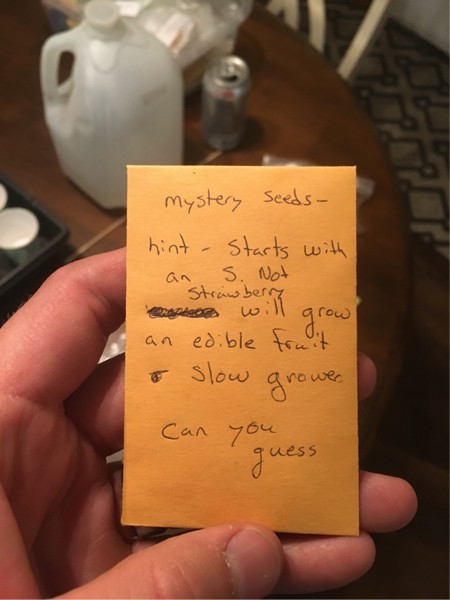 mystery seeds-
hint - Starts with
an S. Not
Strawberry
will grow
an edible fruit
slow grower
Can you
guess